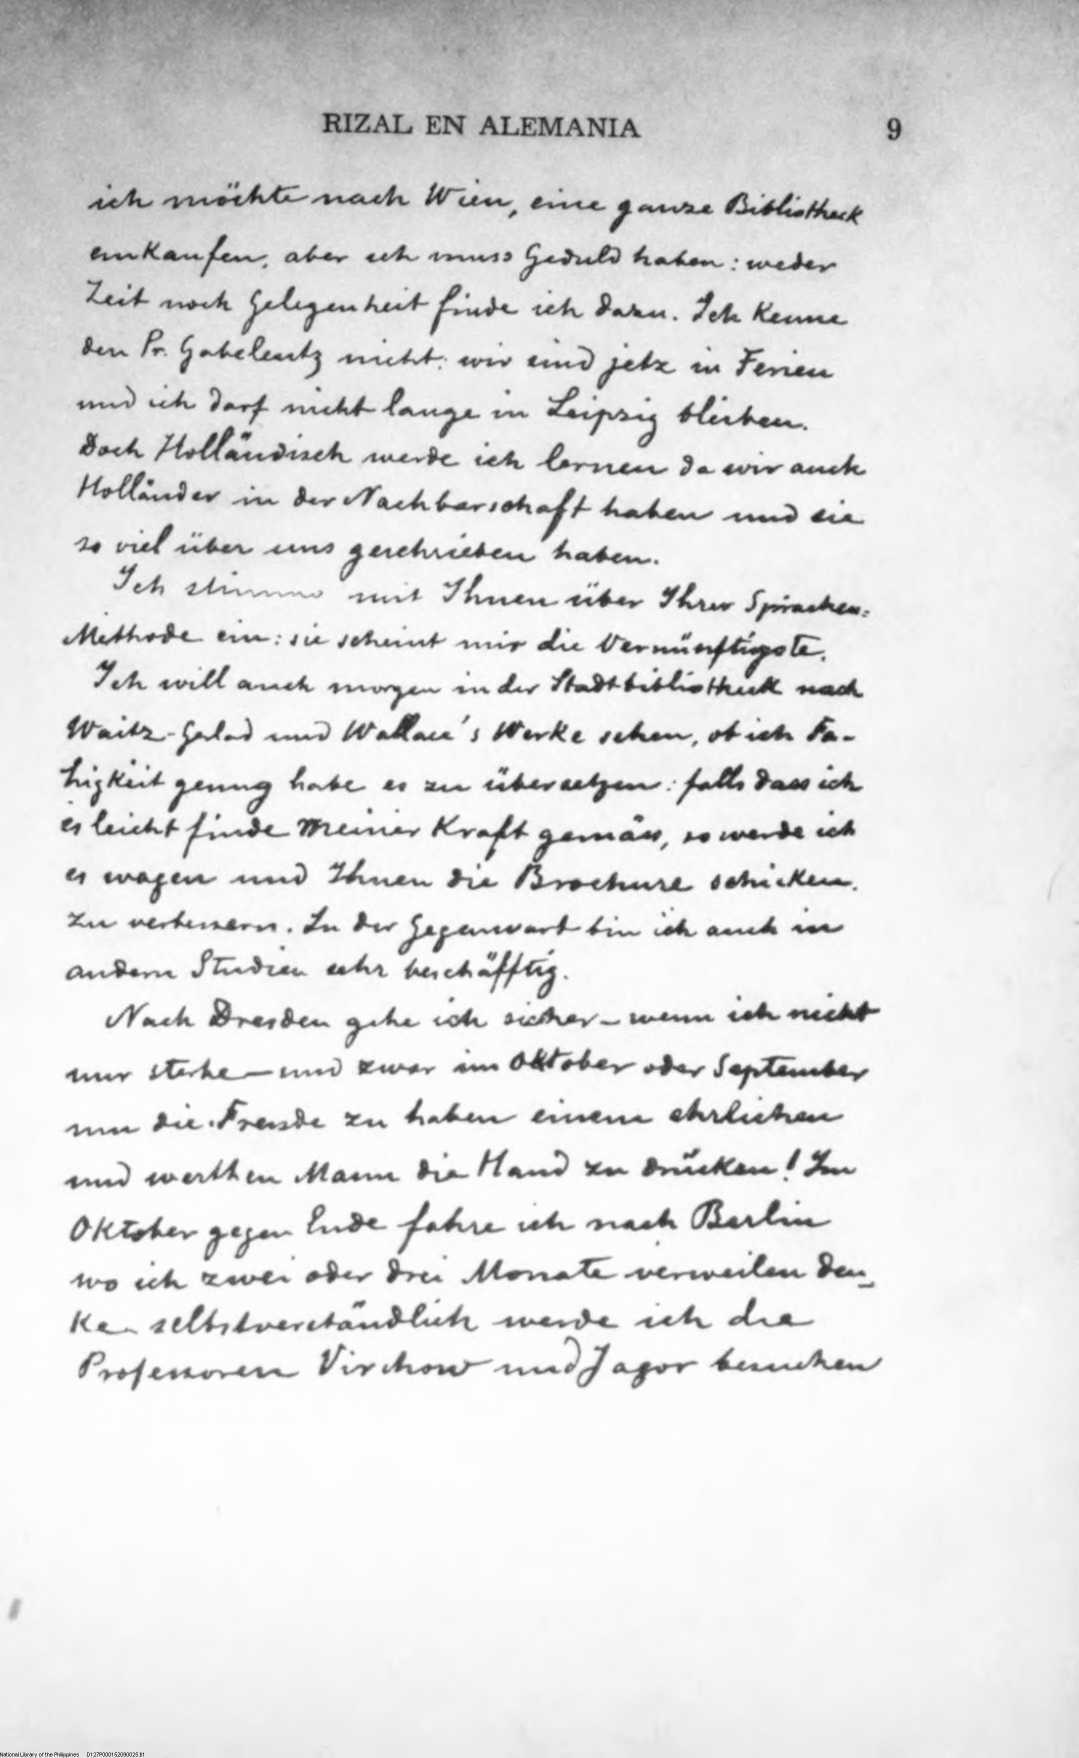 RIZAL EN ALEMANIA 9
ich möchte nach Wien, eine ganze Bibliotheck
einkaufen, aber ich muss Geduld haben: weder
Zeit noch Gelegenheit finde ich dazu. Ich kenne
den Pr. Gabelentz nicht: wir sind jetz in Ferien
und ich darf nicht lange in Leipzig bleiben.
Doch Holländisch werde ich lernen da wir auch
Holländer in der Nachbarschaft haben und sie
so viel über uns geschrieben haben.
Ich stimme mit Ihnen über Ihrer Sprachen=
Methode ein: sie scheint mir die Vernünftigste.
Ich will auch morgen in der Stadtbibliotheck nach
Waitz-Gerlad und Wallace's Werke sehen, ob ich Fa-
higkeit genug habe es zu übersetzen: falls dass ich
es leicht finde meiner Kraft gemäss, so werde ich
es wagen und Ihnen die Brochure schicken.
zu verbessern. In der Gegenwart bin ich auch in
andern Studien sehr beschäfftig.
Nach Dresden gehe ich sicher – wenn ich nicht
nur sterbe – und zwar im Oktober oder September
um die Freude zu haben einem ehrlichen
und werthen Mann die Hand zu drücken! Im
Oktober gegen Ende fahre ich nach Berlin
wo ich zwei oder drei Monate verweilen den-
ke selbstverständlich werde ich die
Professoren Virchow und Jagor besuchen
National Library of the Philippines